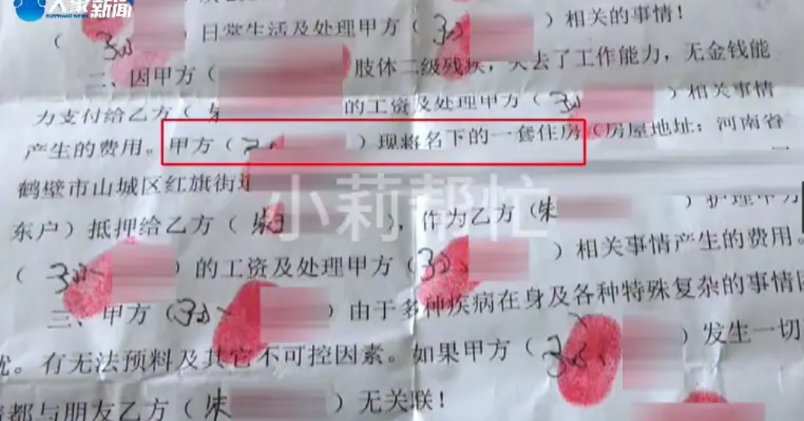 大象新闻
ELEPHANT NEWS
（ ）日常生活及处理甲方（ ）相关的事情！
二、因甲方（ 肢体二级残疾，失去了工作能力，无金钱能
力支付给乙方（朱 的工资及处理甲方（ ）相关事情
产生的费用。甲方（ ）现将名下的一套住房（房屋地址：河南省
鹤壁市山城区红旗街
东户）抵押给乙方（朱 ），作为乙方（朱 护理甲方
（ ）的工资及处理甲方（ ）相关事情产生的费用。
三、甲方（ ）由于多种疾病在身及各种特殊复杂的事情
扰。有无法预料及其它不可控因素。如果甲方（ ）发生一切
都与朋友乙方（朱 ）无关联！
小莉帮忙